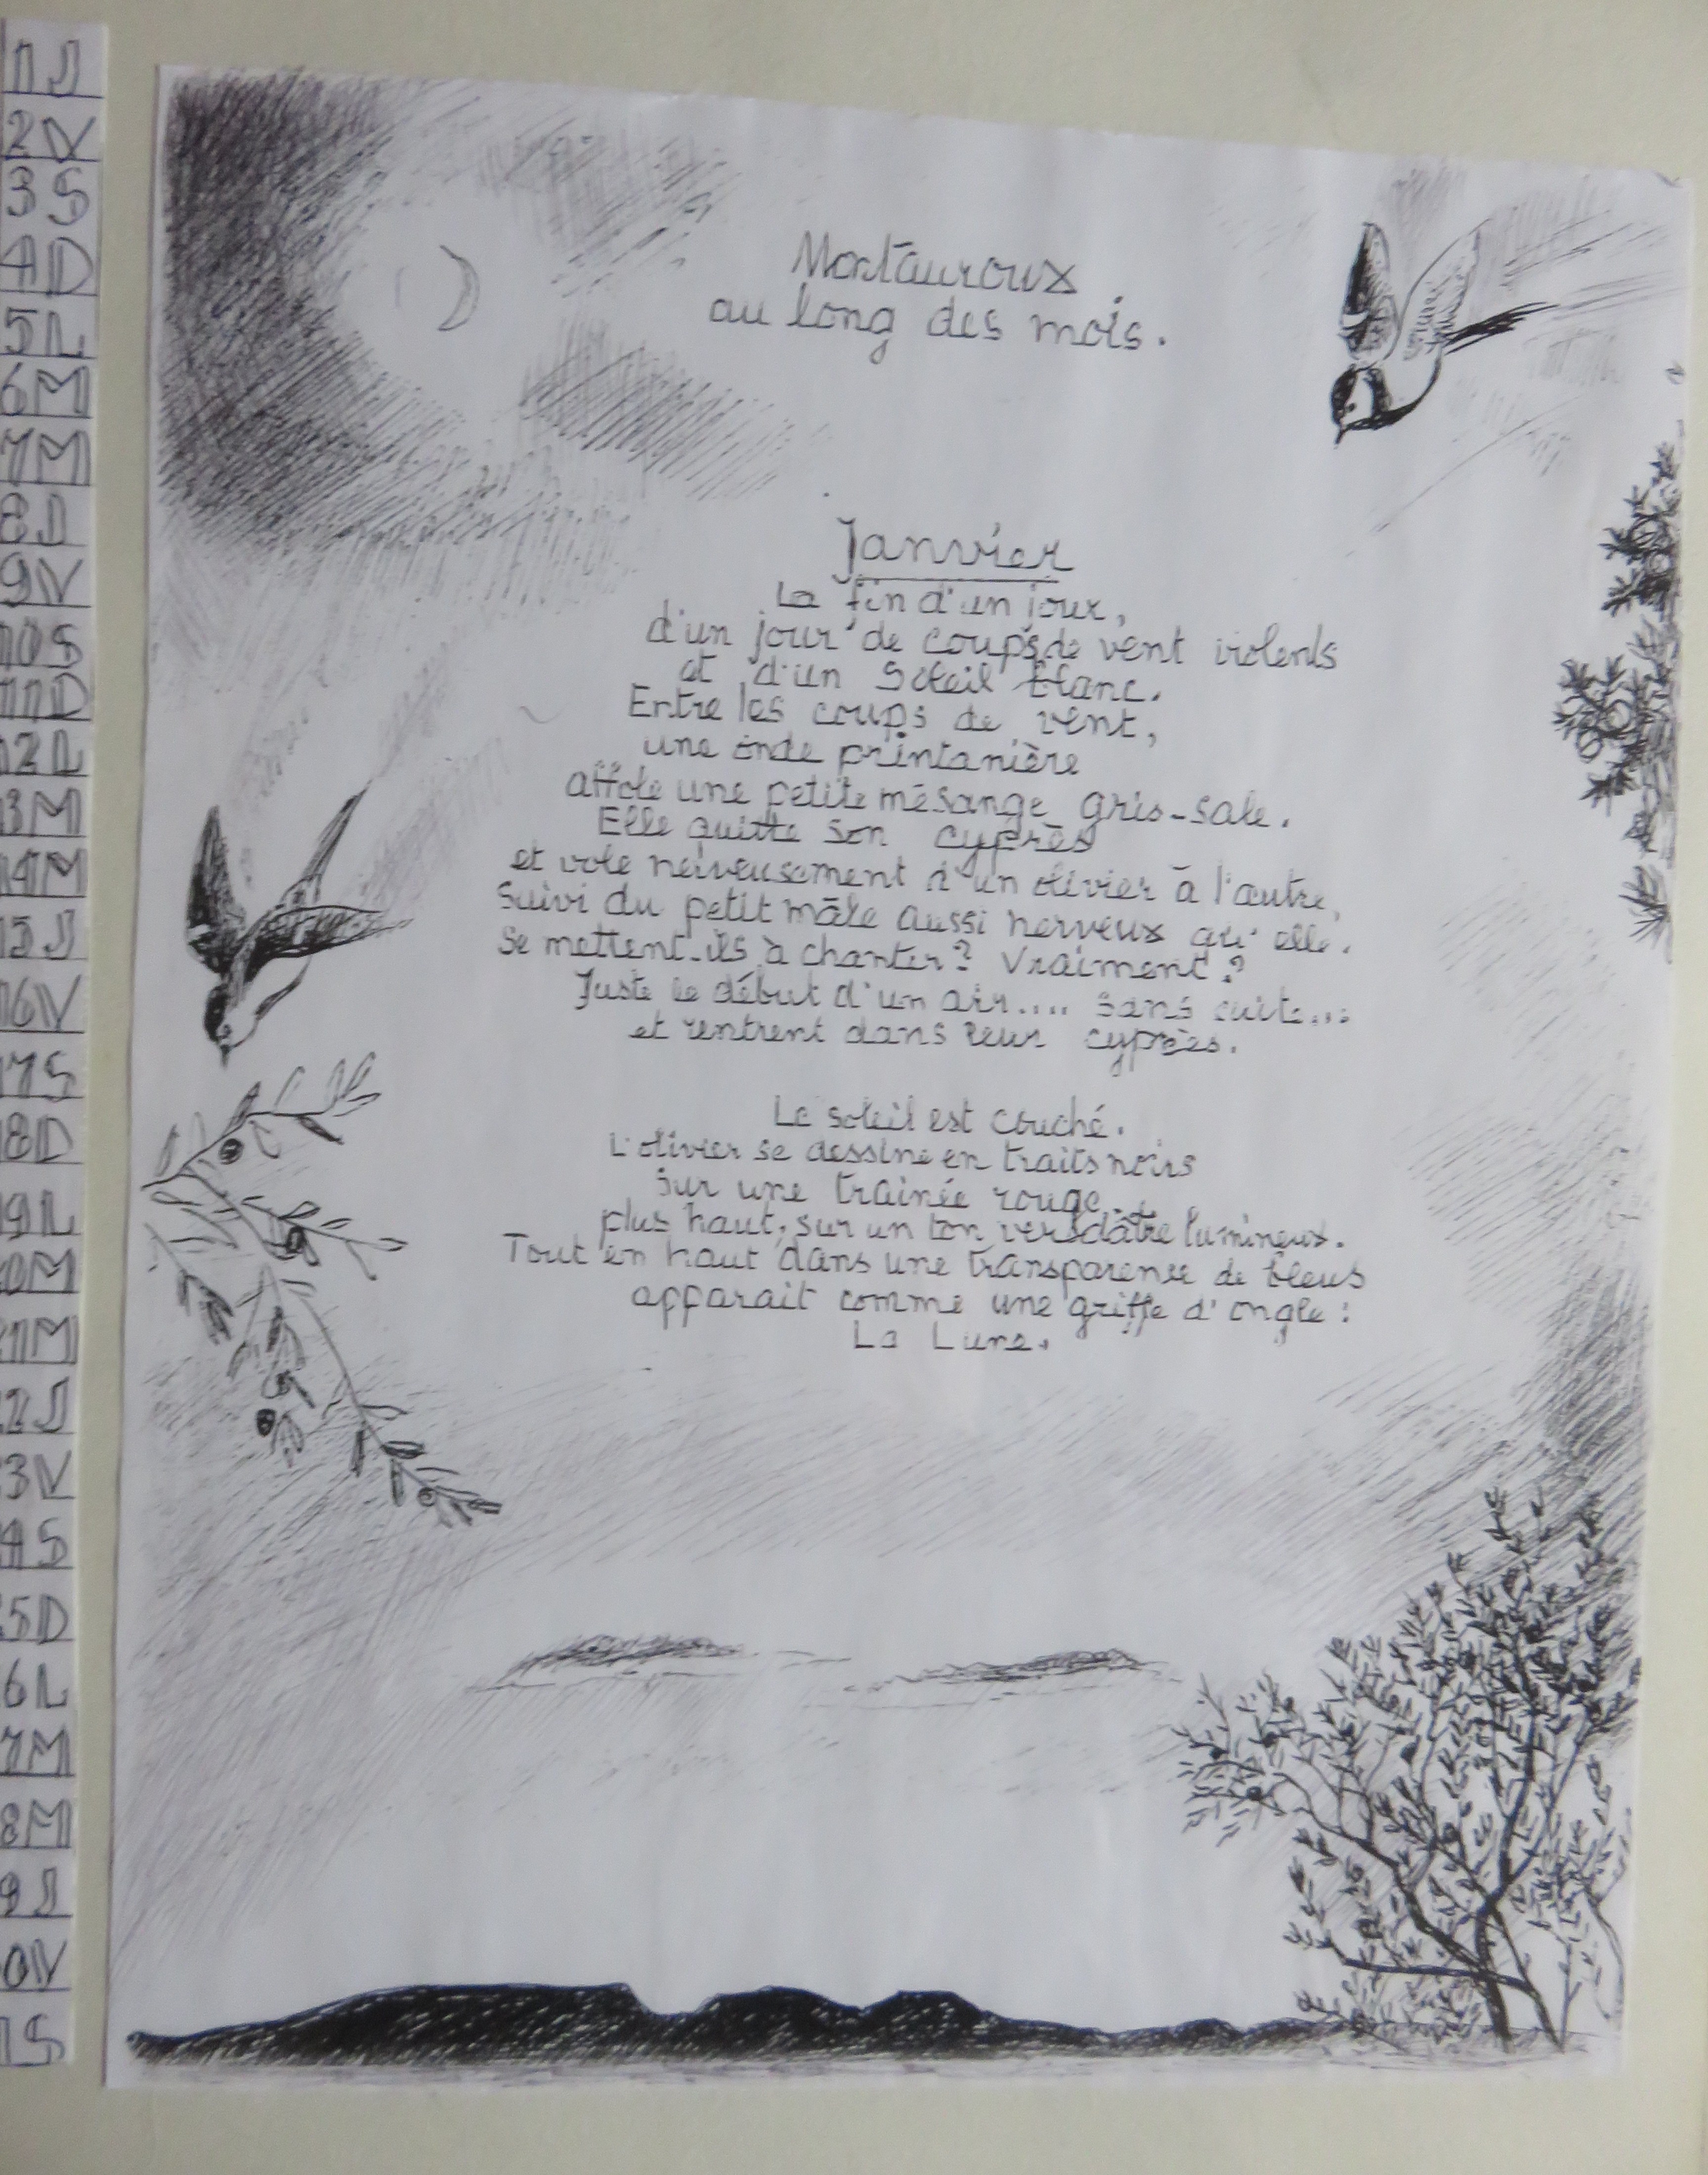 1J
2V
3S
4D
5L
6M
7M
8J
9V
10S
11D
12L
3M
14M
15J
16V
17S
8D
9L
0M
21M
2J
3V
4S
5D
6L
7M
8M
9J
0V
1S
Montauroux
au long des mois.
Janvier
La fin d'un jour,
d'un jour de coups de vent violents
et d'un Soleil blanc.
Entre les coups de vent,
une onde printanière
affole une petite mésange gris-sale.
Elle quitte son cyprès
et vole nerveusement d'un olivier à l'autre,
Suivi du petit mâle aussi nerveux qu'elle.
Se mettent-ils à chanter? Vraiment?
Juste le début d'un air.... sans suite...
et rentrent dans leur cyprès.
Le soleil est couché.
L'olivier se dessine en traits noirs
sur une trainée rouge..
plus haut, sur un ton versdâtre lumineux.
Tout en haut dans une transparence de bleus
apparait comme une griffe d'ongle:
La Lune.